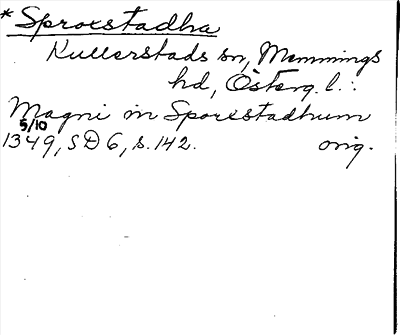 * Sproxstadha
Kullerstads sn, Memmings
hd, Österg. l.:
Magni in Sporxstadhum
5/10
1349, SD 6, s. 142. orig.